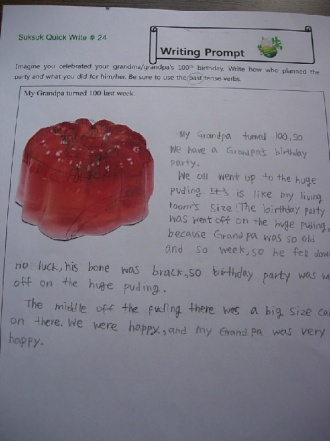 Suksuk Quick Write # 24
Writing Prompt
Imagine you celebrated your grandma/grandpa's 100th birthday. Write how who planned the
party and what you did for him/her. Be sure to use the past tense-verbs.
My Grandpa turned 100 last week.
My Grandpa turned 100, so
We have a Grandpa's birthday
party.
We all went up to the huge
puding. It's is like my living
room's size. The birthday party
was went off on the huge puding,
because Grandpa was so old
and so week, so he fell down
no luck, his bone was brack, so birthday party was
off on the huge puding.
The middle off the puding there was a big size
on there. We were happy, and my Grandpa was very
happy.